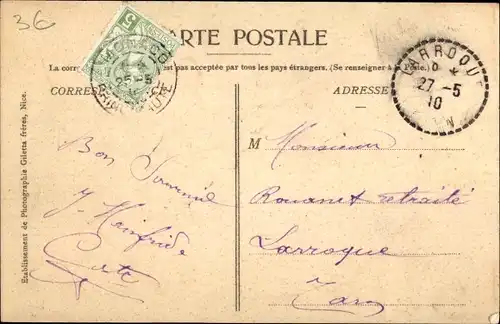 36
CARTE POSTALE
La corr est pas acceptée par tous les pays étrangers. (Se renseigner à la Poste.)
CORRES
ADRESSE
MONACO
25-5
5
LARROQUE
27-5
10
Etablissement de Photographie Giletta frères, Nice.
Bon Souvenir
M Monsieur
Rouanet retraité
Larroque
Tarn